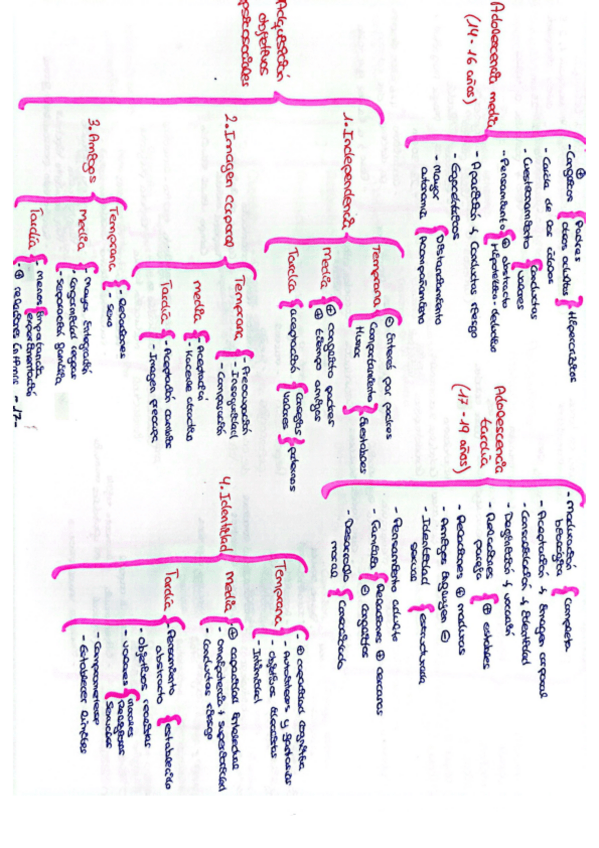 Adolescencia media
(14 - 16 años)
- Conflictos ⊕ { Padres
otros adultos } Hipercríticos
- Caída de los ídolos
- Cuestionamiento { conductas
valores
- Pensamiento { ⊕ abstracto
Hipotético-deductivo
- Aparición conductas riesgo
- Egocéntricos
- Mayor
autonomía { Distanciamiento
Acompañamiento
Adolescencia
tardía
(17 - 19 años)
- Maduración
biológica { Completa
- Aceptación imagen corporal
- Consolidación identidad
- Definición vocación
- Relaciones
pareja { ⊕ estables
- Relaciones ⊕ maduras
- Amigos influyen ⊖
- Identidad
sexual { estructurada
- Pensamiento adulto
- Familia { Relaciones ⊕ cercanas
⊖ conflictos
- Desarrollo
moral { Consolidado
Adquisición
objetivos
psicosociales
1. Independencia
Temprana { ⊖ Interés por padres
Comportamiento
Humor } inestables
Media { ⊕ conflicto padres
⊕ tiempo amigos
Tardía { aceptación { consejos
valores } paternos
2. Imagen corporal
Temprana { - Preocupación
- Inseguridad
- Comparación
media { - Aceptación
- Hacerse atractivo
Tardía { - Aceptación cambios
- Imagen preocupa
3. Amigos
Temprana { - Relaciones
- Sexo
media { - Mayor integración
- Conformidad
- Separación familia
Tardía { - Menos { importancia
experimentación
- ⊕ relaciones íntimas
4. Identidad
Temprana { - ⊕ capacidad cognitiva
- objetivos idealistas
- Intimidad
Media { - ⊕ capacidad intelectual
- Omnipotencia
- Conductas riesgo
Tardía { - Pensamiento
abstracto { establecido
- objetivos realistas
- valores { Morales
Religiosos
Sexuales
- Comprometerse
- Establecer límites
- 17 -